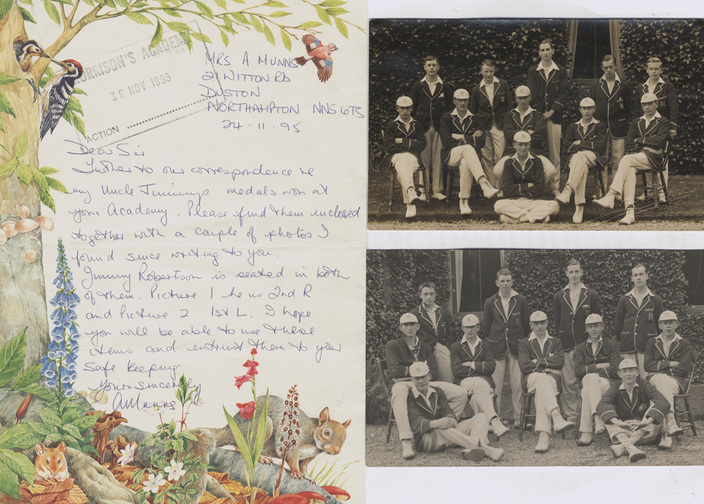 MORRISON'S ACADEMY
30 NOV 1995
ACTION
MRS A MUNNS
2 WITTON RD
DUSTON
NORTHAMPTON NN5 6TS
24·11·95
Dear Sir
Further to our correspondence re
my Uncle Jimmys medals won at
your Academy. Please find them enclosed
together with a couple of photos I
found since writing to you.
Jimmy Robertson is seated in both
of them. Picture 1 he is 2nd R
and Picture 2 1st L. I hope
you will be able to use these
items and entrust them to your
safe keeping.
Yours Sincerely
A Munns